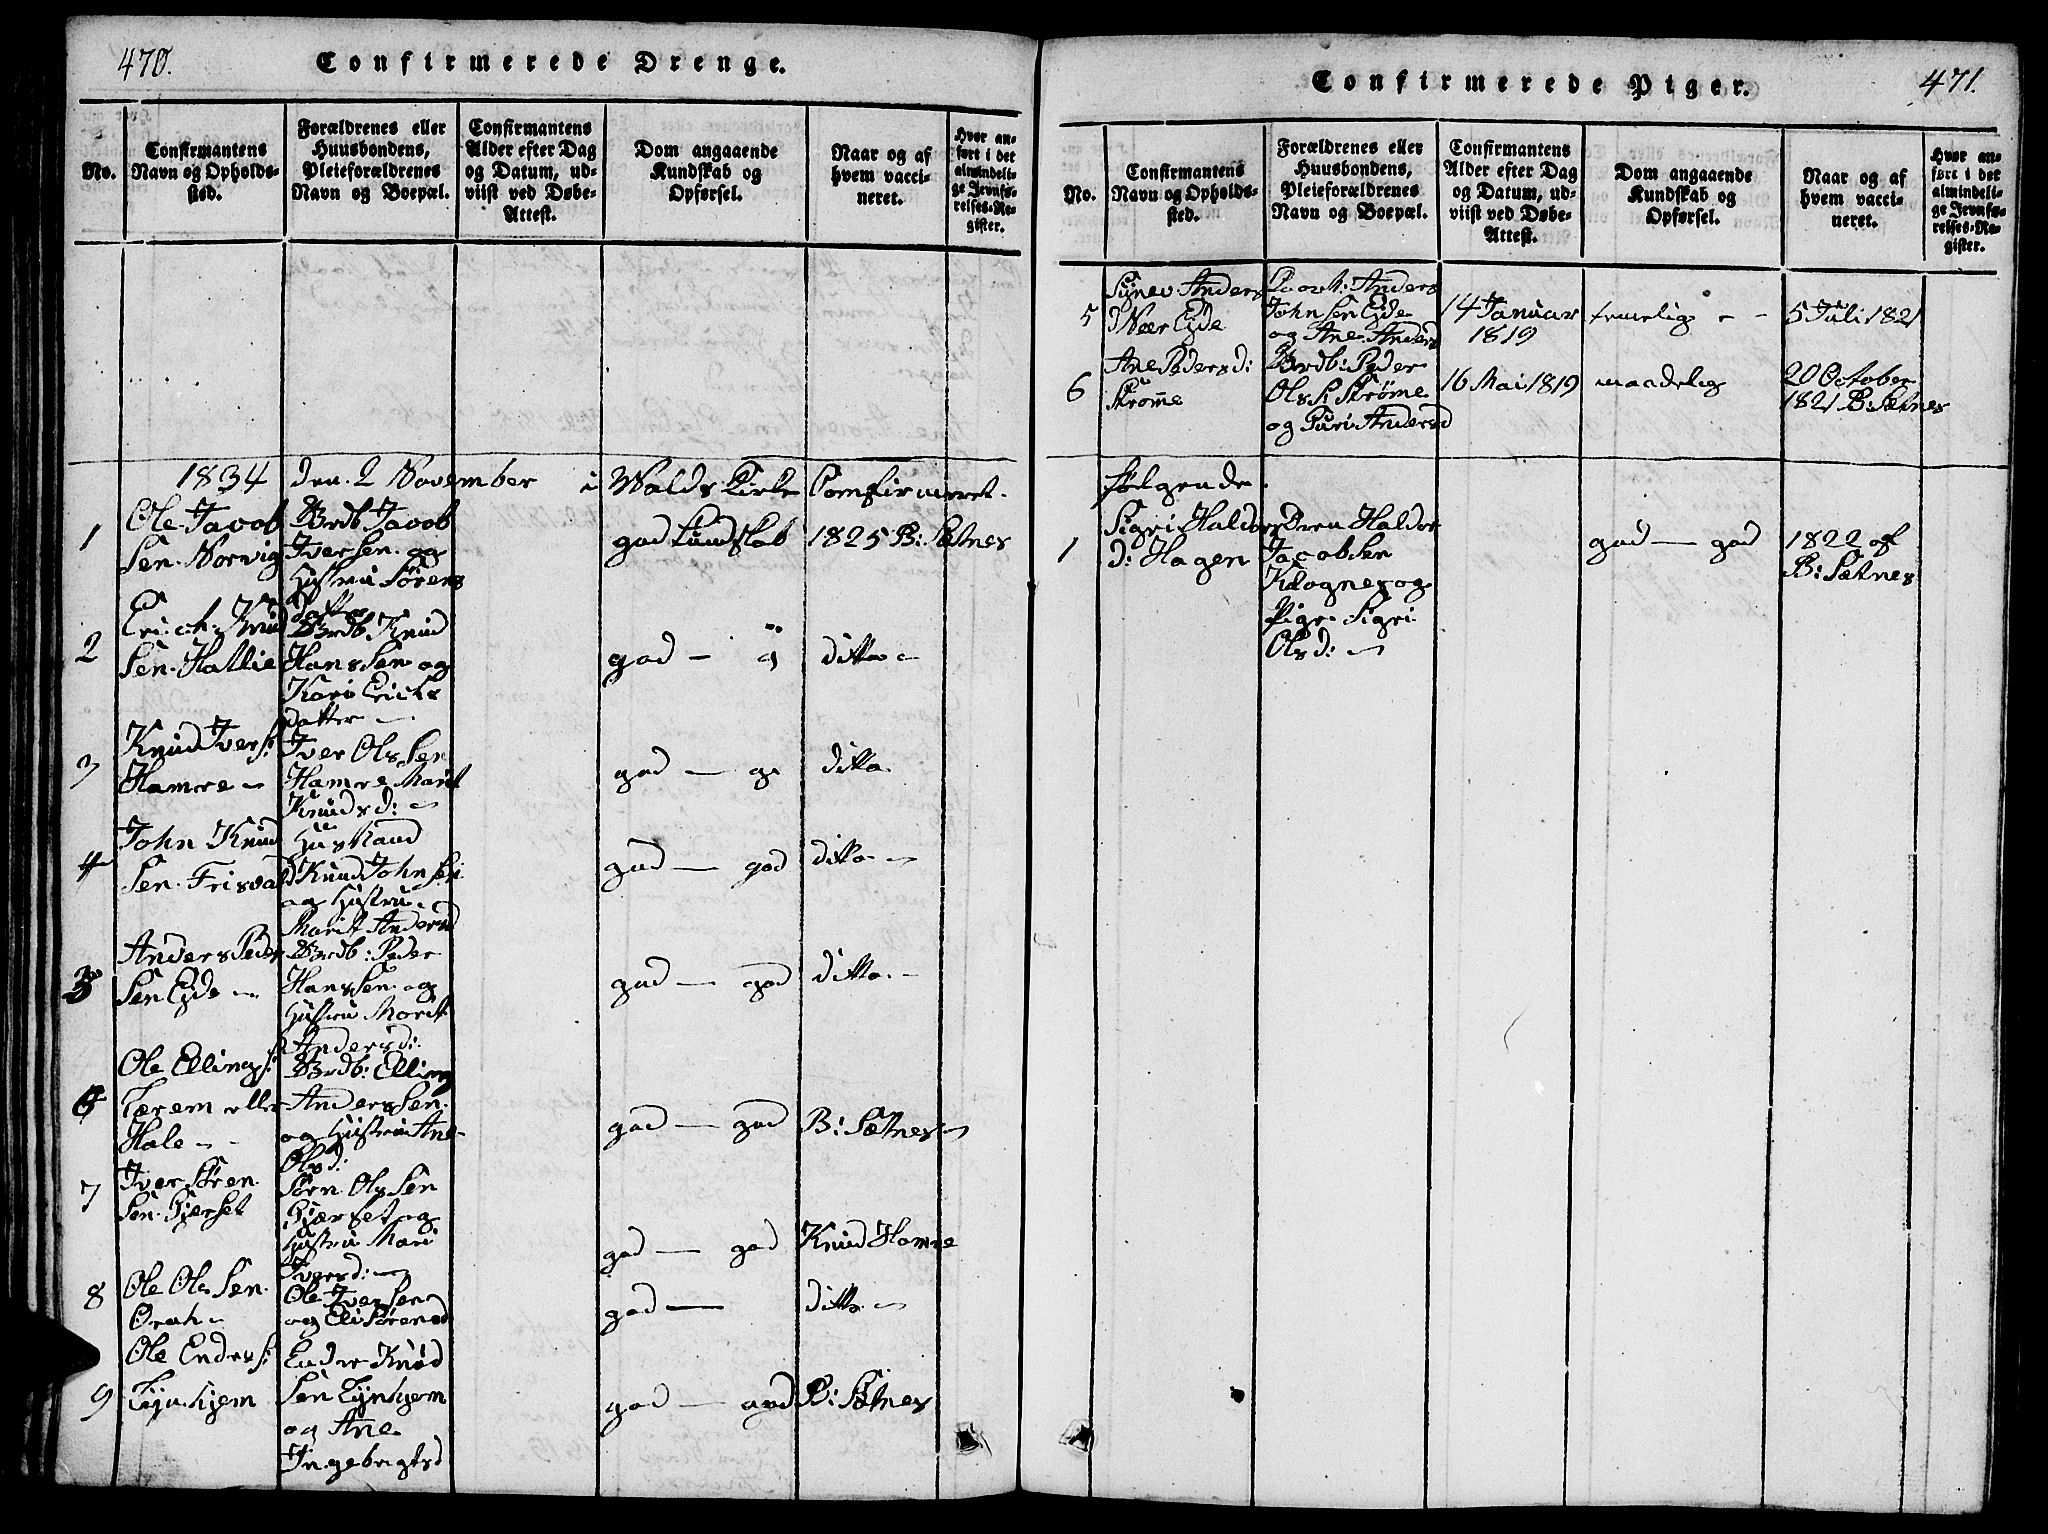 470.
Confirmerede Drenge.
No.
Confirmantens
Navn og Opholds-
sted.
Forældrenes eller
Huusbondens,
Pleieforældrenes
Navn og Boepæl.
Confirmantens
Alder efter Dag
og Datum, ud-
viist ved Døbe-
Attest.
Dom angaaende
Kundskab og
Opførsel.
Naar og af
hvem vacci-
neret.
Hvor an-
ført i det
almindeli-
ge Jevnfø-
relses-Re-
gister.
1834 den 2 November i Wolds Kirke Comfirmeret
1
Ole Jacob
Sen. Norvig
Brdb. Jacob
Iversen og
Hustru Sørens
datter
god Kundskab
1825 B: Sætnes
2
Erich Knud
Sen. Hallie
Brdb. Knud
Hans Sen og
Kari Erichs
datter
god — g
ditto
3
Knud Ivers:
Hamre
Iver Ols Sen
Hamre Marit
Knudsd:
god — go
ditto.
4
John Knud
Sen. Frisvold
Husmand
Knud John Sen
og Hustru
Marit Andersd
god — god
ditto
5
Anders Peder
Sen Eide
Brdb: Peder
Hans Sen og
Hustru Marit
Andersd:
god — god
ditto.
6
Ole Ellings:
Tærem eller
Hole
Brdb: Elling
Anders Sen.
og Hustru Ane
Olsd:
god — god
B: Sætnes
7
Iver Sören
Sen. Bjerset
Sörn Ols Sen
Bjærset og
Hustru Mari
Iversd:
god — god
Knud Hamre
8
Ole Ols Sen.
Orah
Ole Iversen
og Eli Sörensd
god —
ditto
9
Ole Endres:
Lynhjem
Endre Knud
Sen Lynhjem
og Ane
Ingebrigtsd
god — god
B: Sætnes
Confirmerede Piger.
471.
No.
Confirmantens
Navn og Opholds-
sted.
Forældrenes eller
Huusbondens,
Pleieforældrenes
Navn og Boepæl.
Confirmantens
Alder efter Dag
og Datum, ud-
viist ved Døbe-
Attest.
Dom angaaende
Kundskab og
Opførsel.
Naar og af
hvem vacci-
neret.
Hvor an-
ført i det
almindeli-
ge Jevnfø-
relses-Re-
gister.
5
Synev Anders
Nær Eide
Anders
John Sen Eide
og Ane Andersd
14 Januar
1819
temelig
5 Juli 1821
6
Ane Pedersd:
Strømme
Brdb: Peder
Ols S. Strøme
og Guri Andersd
16 Mai 1819
maadelig
20 October
1821 B: Sætnes
følgende.
1
Sigri Haldors
d: Hagen
Dren Haldor
Jacob Sen
Klognes og
Pige Sigri
Olsd:
god — god
1822 af
B: Sætnes